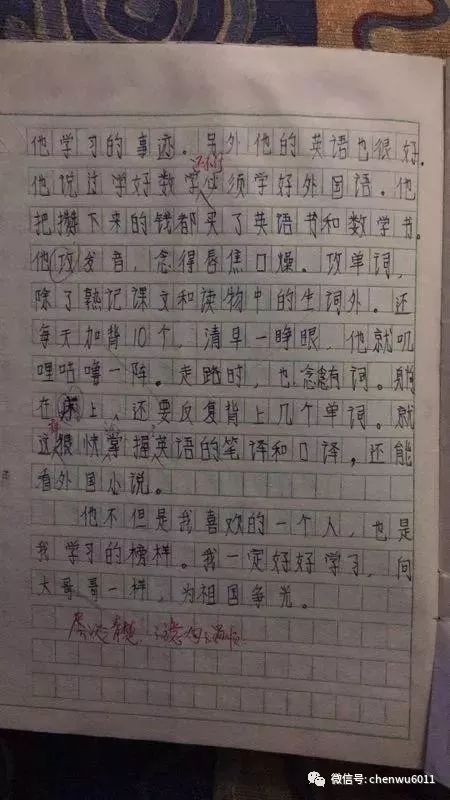 他学习的事迹。另外他的英语也很好。
不仅
他说过学好数学必须学好外国语。他
把攒下来的钱都买了英语书和数学书。
他攻发音，念得唇焦口燥。攻单词，
除了熟记课文和读物中的生词外。还
每天加背10个，清早一睁眼，他就叽
哩咕噜一阵。走路时，也念念有词。躺
在床上，还要反复背上几个单词。就
这很快掌握英语的笔译和口译，还能
看外国小说。
他不但是我喜欢的一个人，也是
我学习的榜样。我一定好好学习，向
大哥哥一样，为祖国争光。
层次清楚，语句通顺
微信号: chenwu6011